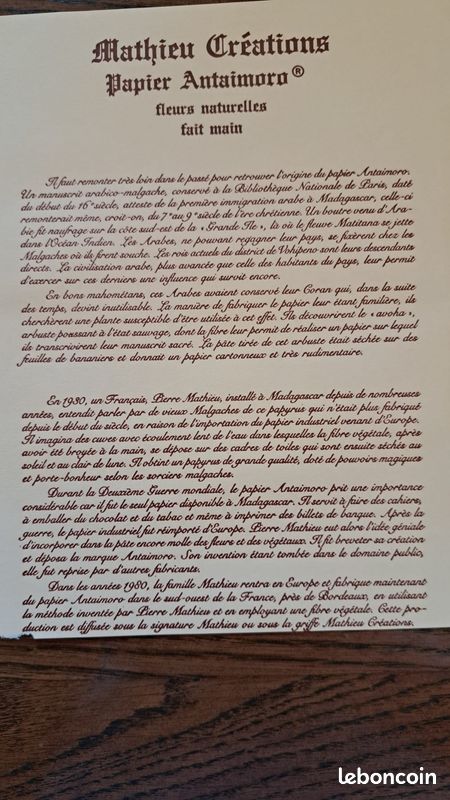 Mathieu Créations
Papier Antaimoro®
fleurs naturelles
fait main
Il faut remonter très loin dans le passé pour retrouver l'origine du papier Antaimoro.
Un manuscrit arabico-malgache, conservé à la Bibliothèque Nationale de Paris, daté
du début du 16e siècle, atteste de la première immigration arabe à Madagascar, celle-ci
remonterait même, croit-on, du 7e au 9e siècle de l'ère chrétienne. Un boutre venu d'Ara-
bie fit naufrage sur la côte sud-est de la « Grande Ile », là où le fleuve Matitana se jette
dans l'Océan Indien. Les Arabes, ne pouvant regagner leur pays, se fixèrent chez les
Malgaches où ils firent souche. Les rois actuels du district de Vohipeno sont leurs descendants
directs. La civilisation arabe, plus avancée que celle des habitants du pays, leur permit
d'exercer sur ces derniers une influence qui survit encore.
En bons mahométans, ces Arabes avaient conservé leur Coran qui, dans la suite
des temps, devint inutilisable. La manière de fabriquer le papier leur étant familière, ils
cherchèrent une plante susceptible d'être utilisée à cet effet. Ils découvrirent le « avoha »,
arbuste poussant à l'état sauvage, dont la fibre leur permit de réaliser un papier sur lequel
ils transcrivirent leur manuscrit sacré. La pâte tirée de cet arbuste était séchée sur des
feuilles de bananiers et donnait un papier cartonneux et très rudimentaire.
En 1930, un Français, Pierre Mathieu, installé à Madagascar depuis de nombreuses
années, entendit parler par de vieux Malgaches de ce papyrus qui n'était plus fabriqué
depuis le début du siècle, en raison de l'importation du papier industriel venant d'Europe.
Il imagina des cuves avec écoulement lent de l'eau dans lesquelles la fibre végétale, après
avoir été broyée à la main, se dépose sur des cadres de toiles qui sont ensuite séchés au
soleil et au clair de lune. Il obtint un papyrus de grande qualité, doté de pouvoirs magiques
et porte-bonheur selon les sorciers malgaches.
Durant la Deuxième Guerre mondiale, le papier Antaimoro prit une importance
considérable car il fut le seul papier disponible à Madagascar. Il servit à faire des cahiers,
à emballer du chocolat et du tabac et même à imprimer des billets de banque. Après la
guerre, le papier industriel fut réimporté d'Europe. Pierre Mathieu eut alors l'idée géniale
d'incorporer dans la pâte encore molle des fleurs et des végétaux. Il fit breveter sa création
et déposa la marque Antaimoro. Son invention étant tombée dans le domaine public,
elle fut reprise par d'autres fabricants.
Dans les années 1980, la famille Mathieu rentra en Europe et fabrique maintenant
du papier Antaimoro dans le sud-ouest de la France, près de Bordeaux, en utilisant
la méthode inventée par Pierre Mathieu et en employant une fibre végétale. Cette pro-
duction est diffusée sous la signature Mathieu ou sous la griffe Mathieu Créations.
leboncoin